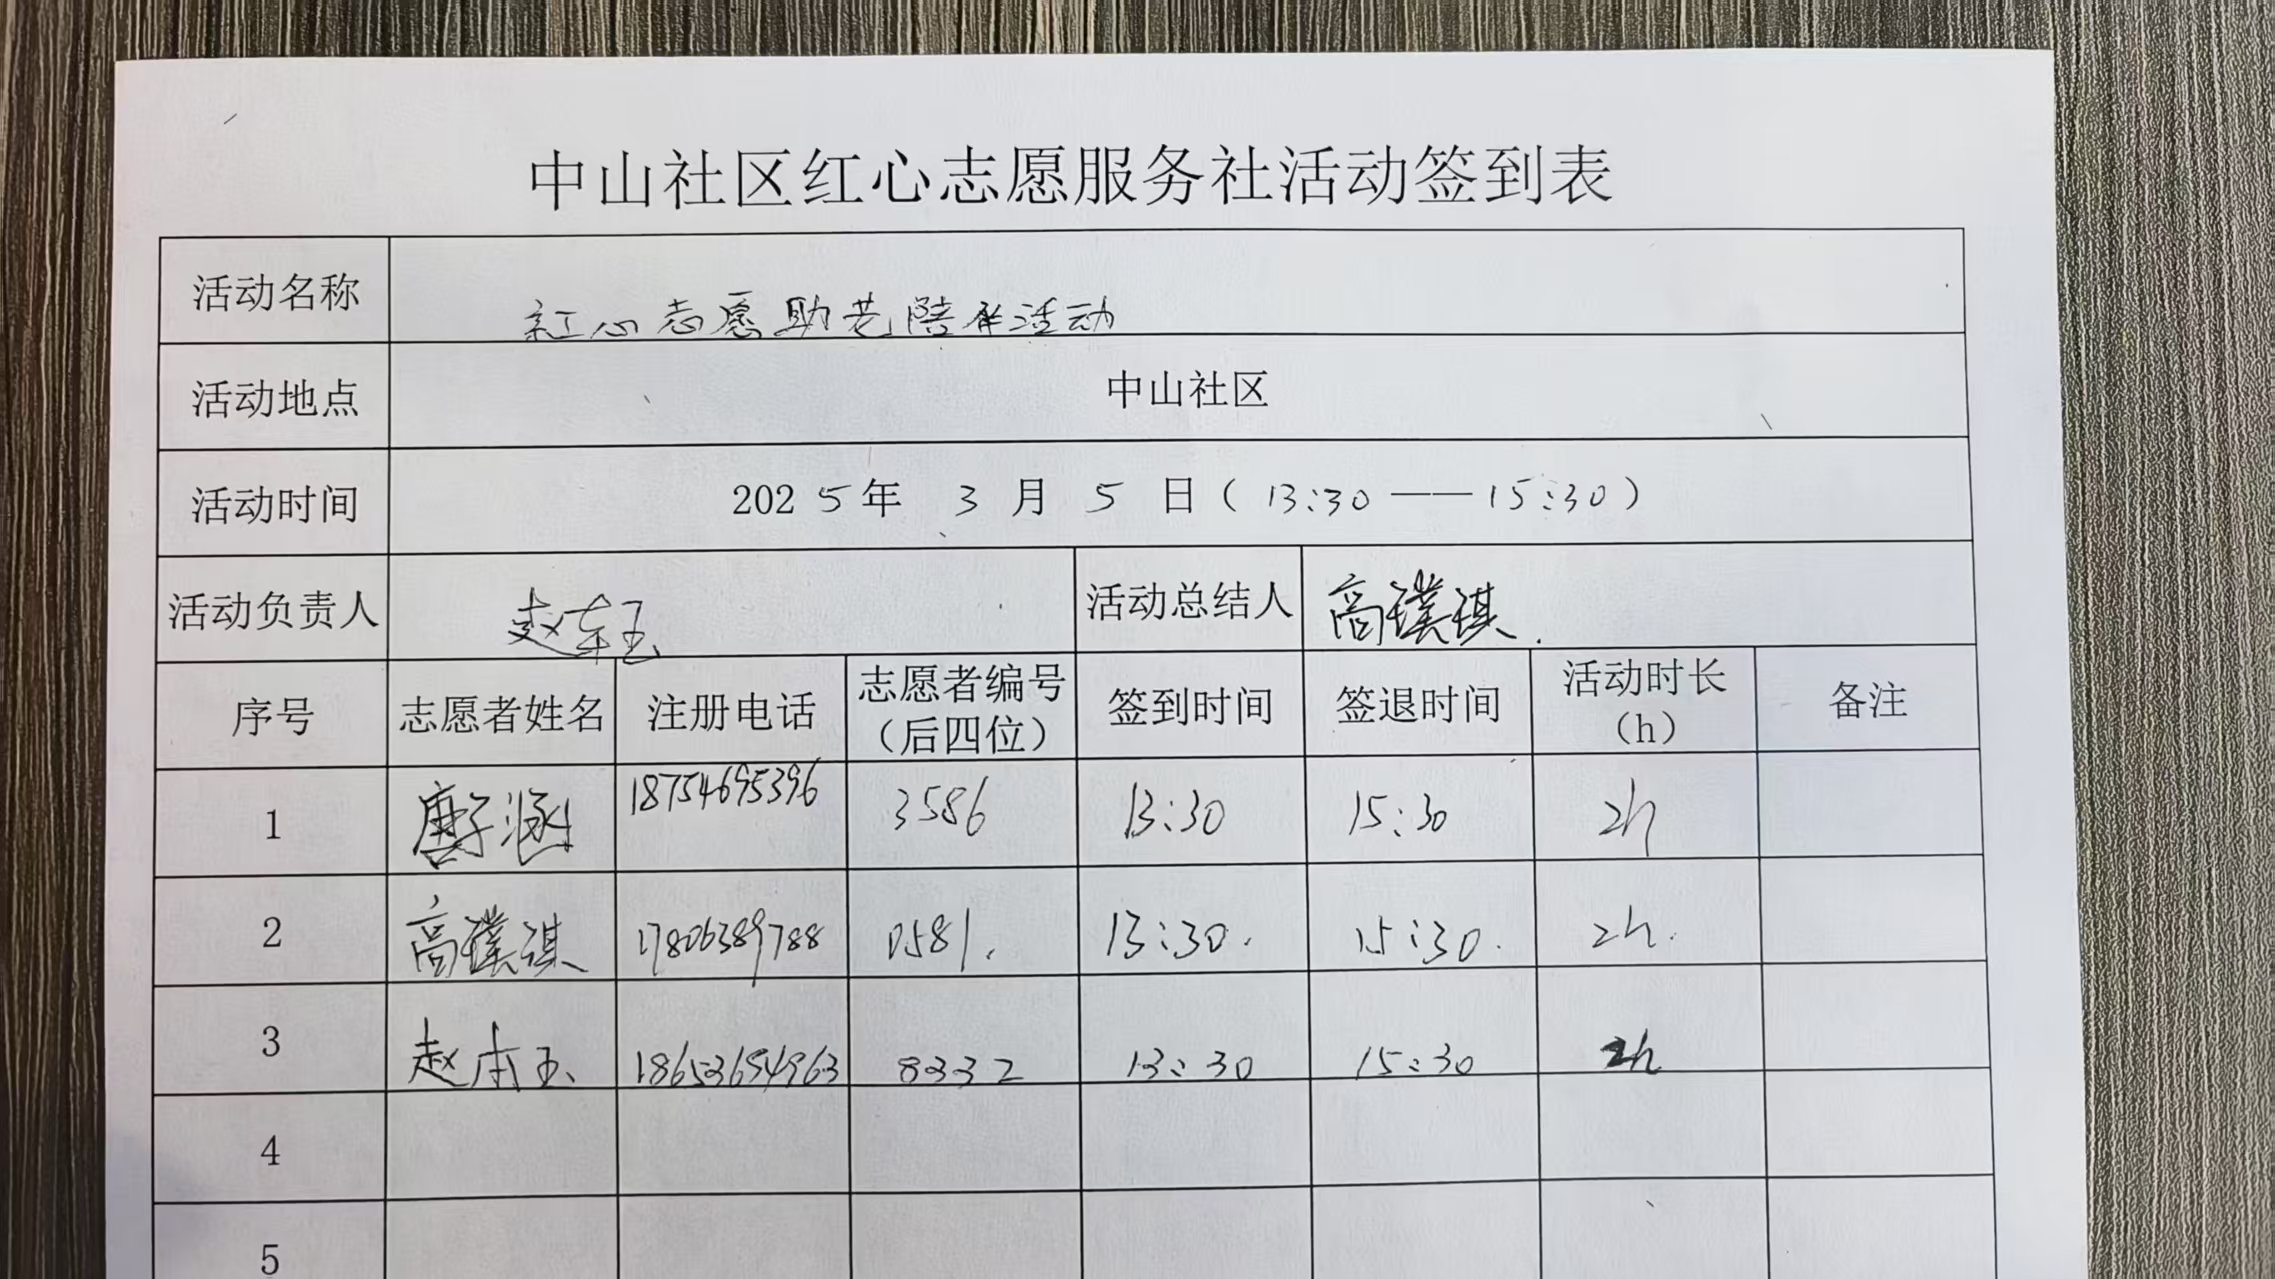 中山社区红心志愿服务社活动签到表
活动名称 红心志愿助老陪伴活动
活动地点 中山社区
活动时间 2025年 3 月 5 日（13:30——15:30）
活动负责人 赵本玉 活动总结人 高璞琪
序号 志愿者姓名 注册电话 志愿者编号（后四位） 签到时间 签退时间 活动时长（h） 备注
1 唐子涵 18754695396 3586 13:30 15:30 2h
2 高璞琪 17806389788 0581. 13:30. 15:30. 2h.
3 赵本玉 18653654963 8332 13:30 15:30 2h
4
5